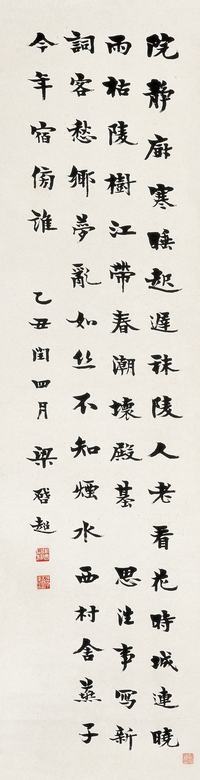 院靜廚寒睡起遲秣陵人老看花時城連曉
雨枯陵樹江帶春潮壞殿基 思往事寫新
詞客愁鄉夢亂如丝不知煙水西村舍燕子
今年宿傍誰 乙丑閏四月 梁啓超